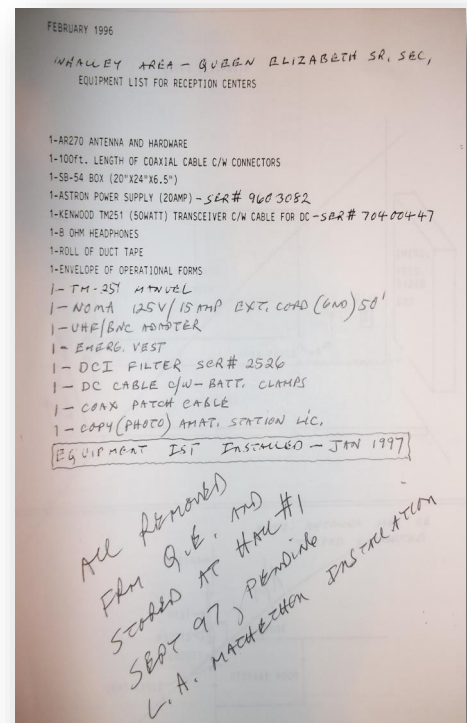 FEBRUARY 1996
WHALLEY AREA - QUEEN ELIZABETH SR. SEC,
EQUIPMENT LIST FOR RECEPTION CENTERS
1-AR270 ANTENNA AND HARDWARE
1-100ft. LENGTH OF COAXIAL CABLE C/W CONNECTORS
1-SB-54 BOX (20"X24"X6.5")
1-ASTRON POWER SUPPLY (20AMP) - SER# 9603082
1-KENWOOD TM251 (50WATT) TRANSCEIVER C/W CABLE FOR DC - SER# 70400447
1-8 OHM HEADPHONES
1-ROLL OF DUCT TAPE
1-ENVELOPE OF OPERATIONAL FORMS
1- TM-251 MANUEL
1- NOMA 125V/15AMP EXT. CORD (GND) 50'
1- UHF/BNC ADAPTER
1- EMERG. VEST
1- DCI FILTER SER# 2526
1- DC CABLE C/W - BATT. CLAMPS
1- COAX PATCH CABLE
1- COPY (PHOTO) AMAT. STATION LIC.
EQUIPMENT IST INSTALLED - JAN 1997
ALL REMOVED
FRM Q.E. AND
STORED AT HALL #1
SEPT 97, PENDING
L.A. MATHESON INSTALLATION